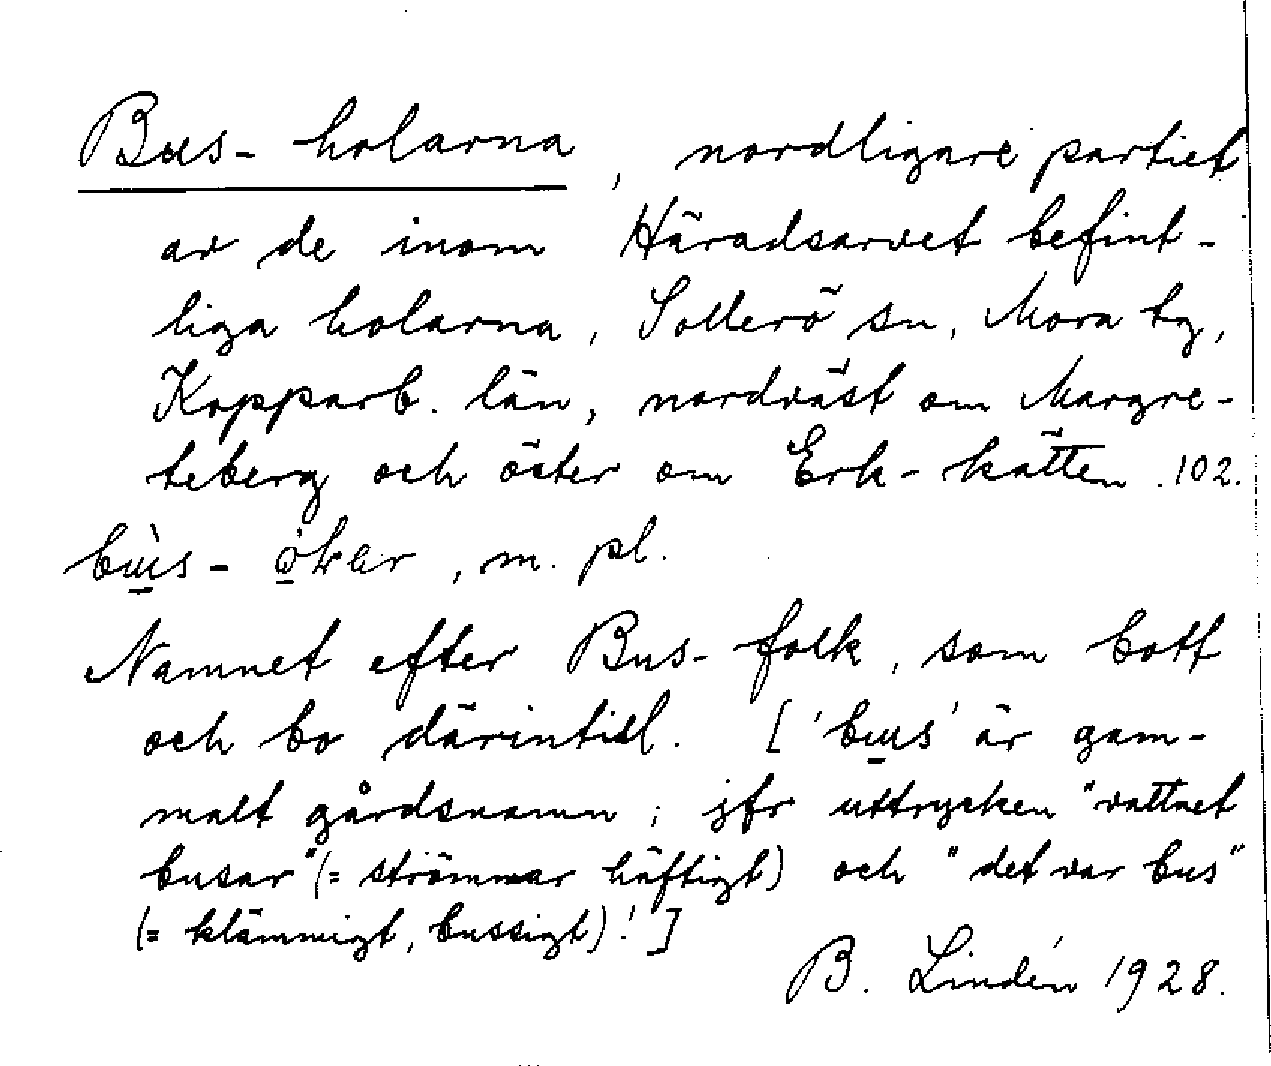 Bus-holarna, nordligare partiet
av de inom Häradsarvet befint-
liga holarna, Sollerö sn, Mora tg,
Kopparb. län, nordväst om Margre-
teberg och öster om Erk-kätten. 102.
bùs- òkar, m. pl.
Namnet efter Bus-folk, som bott
och bo därintill. ['bus' är gam-
malt gårdsnamn; jfr uttrycken "vattnet
busar" (= strömmar häftigt) och "det var bus"
(= klämmigt, bussigt)!]
B. Lindén 1928.